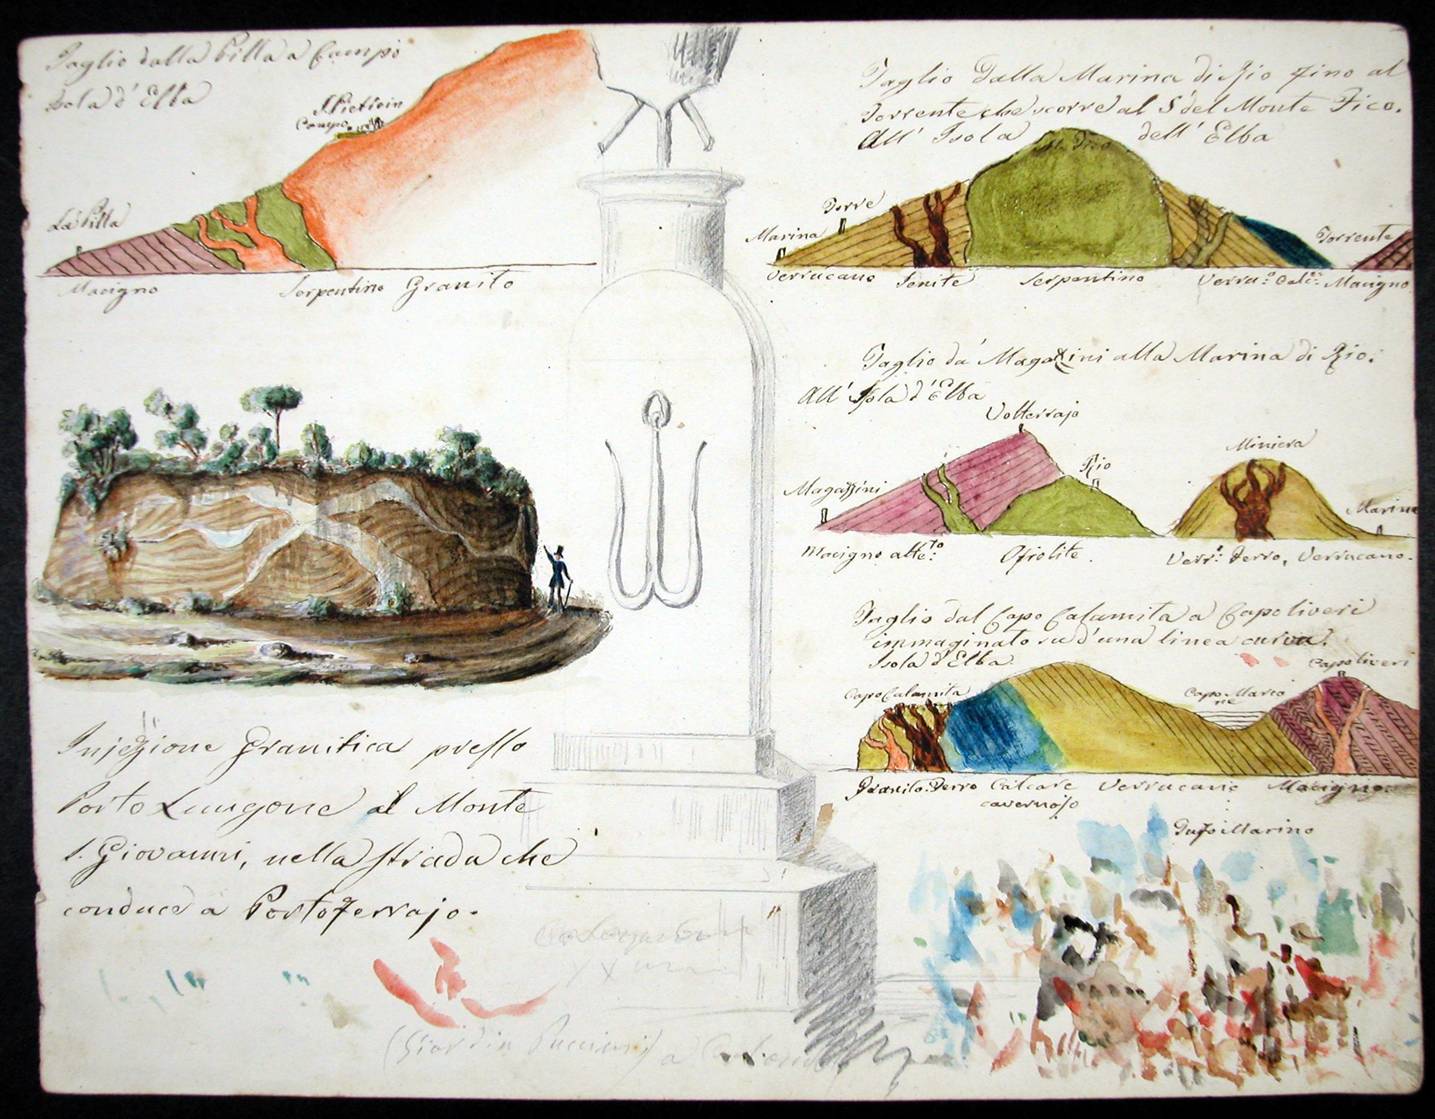 Taglio dalla Pilla a Campo
Isola d'Elba
S. Pietro in
Campo
La Pilla
Macigno Serpentino Granito
Taglio Dalla Marina di Rio fino al
Torrente che scorre al S. del Monte Fico.
All' Isola dell' Elba
Mte Fico
Torre
Marina
Torrente
Verrucano Senite Serpentino Verru:o Calc:e Macigno
Taglio da' Magazzini alla Marina di Rio.
All' Isola d'Elba
Volterrajo
Miniera
Rio
Magazzini
Marina
Macigno alte:to Ofiolite. Verr:o Ferro, Verrucano.
Taglio dal Capo Calamita a Capoliveri
immaginato su d'una linea curva.
Isola d'Elba
Capoliveri
Capo Calamita
Granito. Ferro Calcare Verrucano Macigno
cavernoso
Marino
Injezione Granitica presso
Porto Lungone al Monte
S. Giovanni, nella strada che
conduce a Portoferrajo.